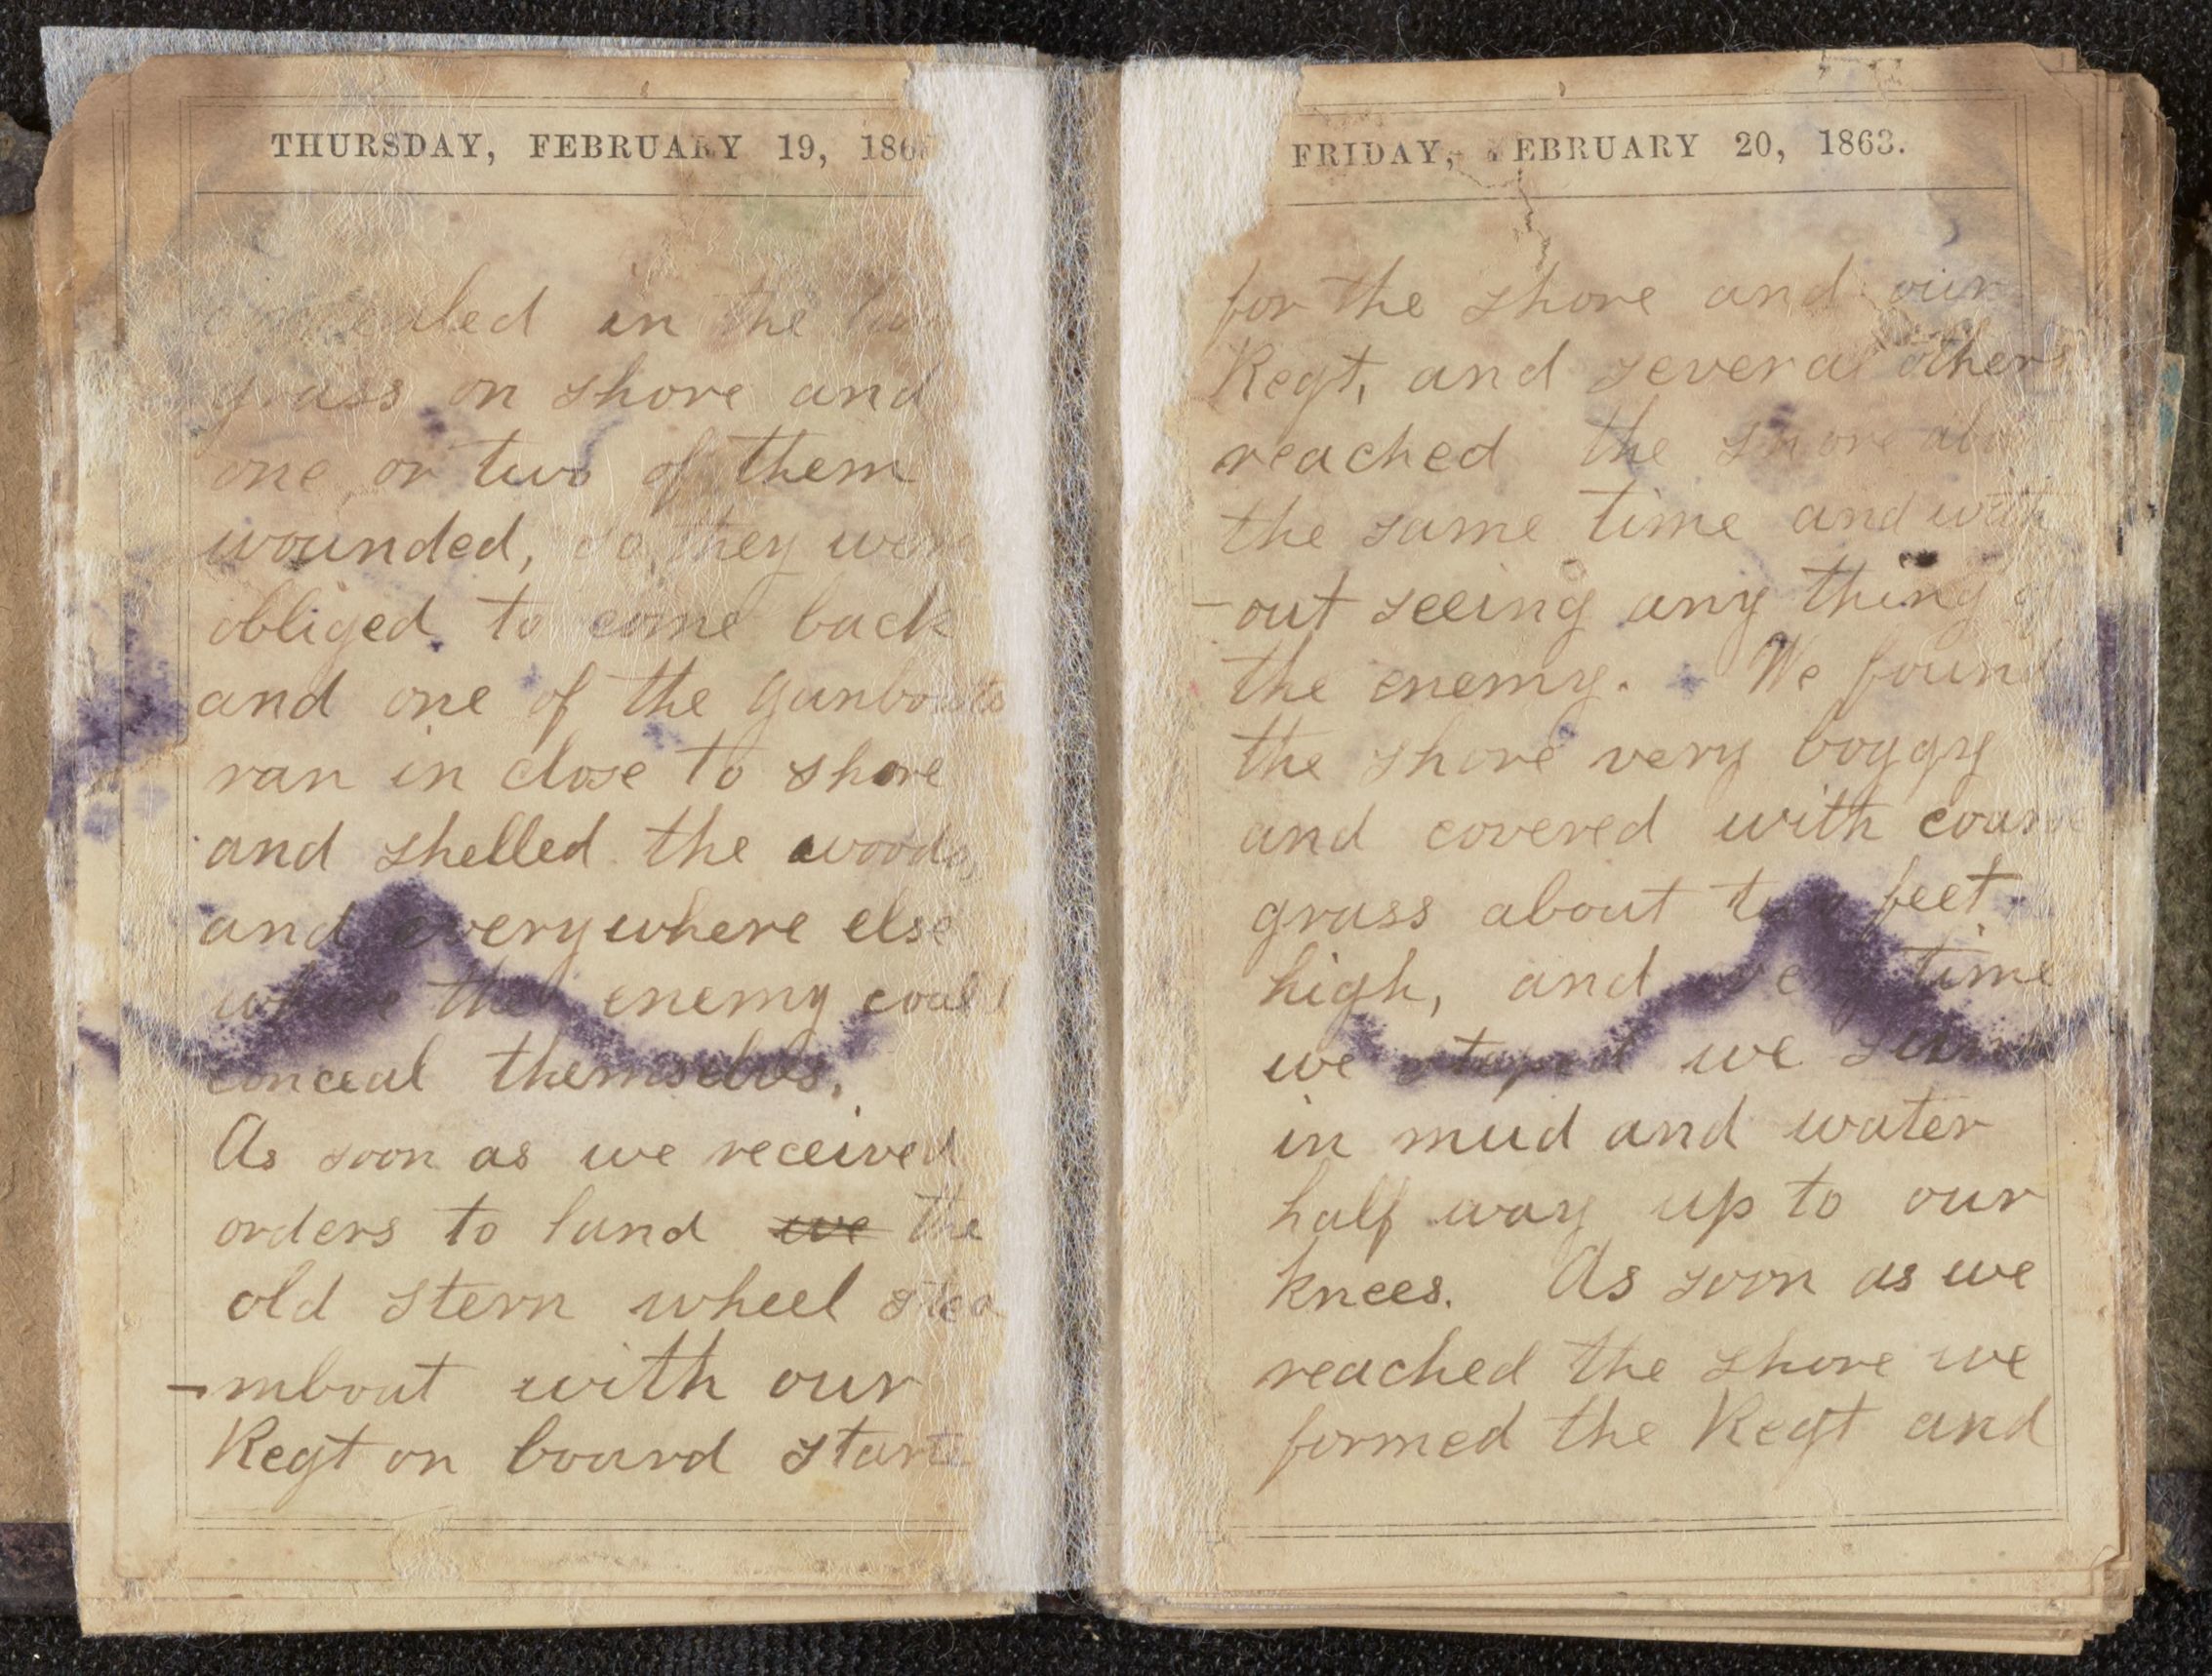 THURSDAY, FEBRUARY 19, 186
concealed in the
grass on shore and
one or two of them
wounded, so they were
obliged to come back
and one of the gunboats
ran in close to shore
and shelled the woods,
and everywhere else
where the enemy could
conceal themselves.
As soon as we received
orders to land we the
old stern wheel stea
-mboat with our
Regt on board start
FRIDAY, FEBRUARY 20, 1863.
for the shore and our
Regt, and several others
reached the shore about
the same time and with
-out seeing any thing of
the enemy. We found
the shore very boggy
and covered with coarse
grass about feet
high, and every time
we steped we sunk
in mud and water
half way up to our
knees. As soon as we
reached the shore we
formed the Regt and